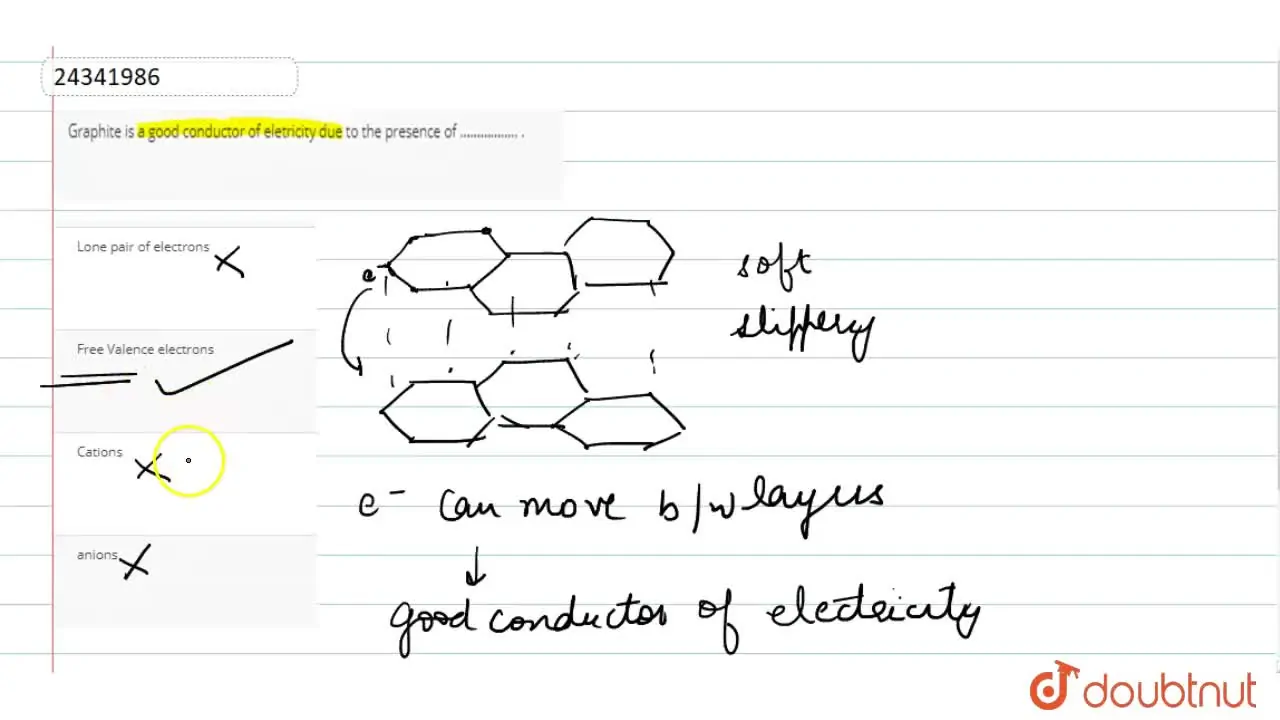 24341986
Graphite is a good conductor of eletricity due to the presence of ................. .
Lone pair of electrons
Free Valence electrons
Cations
anions
e
soft
slippery
e⁻ can move b/w layers
↓
good conductor of electricity
doubtnut